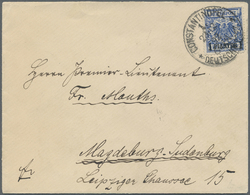 CONSTANTINOPEL
* DEUTSCH
1 PIASTER
Herrn Premier-Lieutenant
Fr. Mouths.
Magdeburg-Sudenburg
Leipziger Chaussee 15
fr